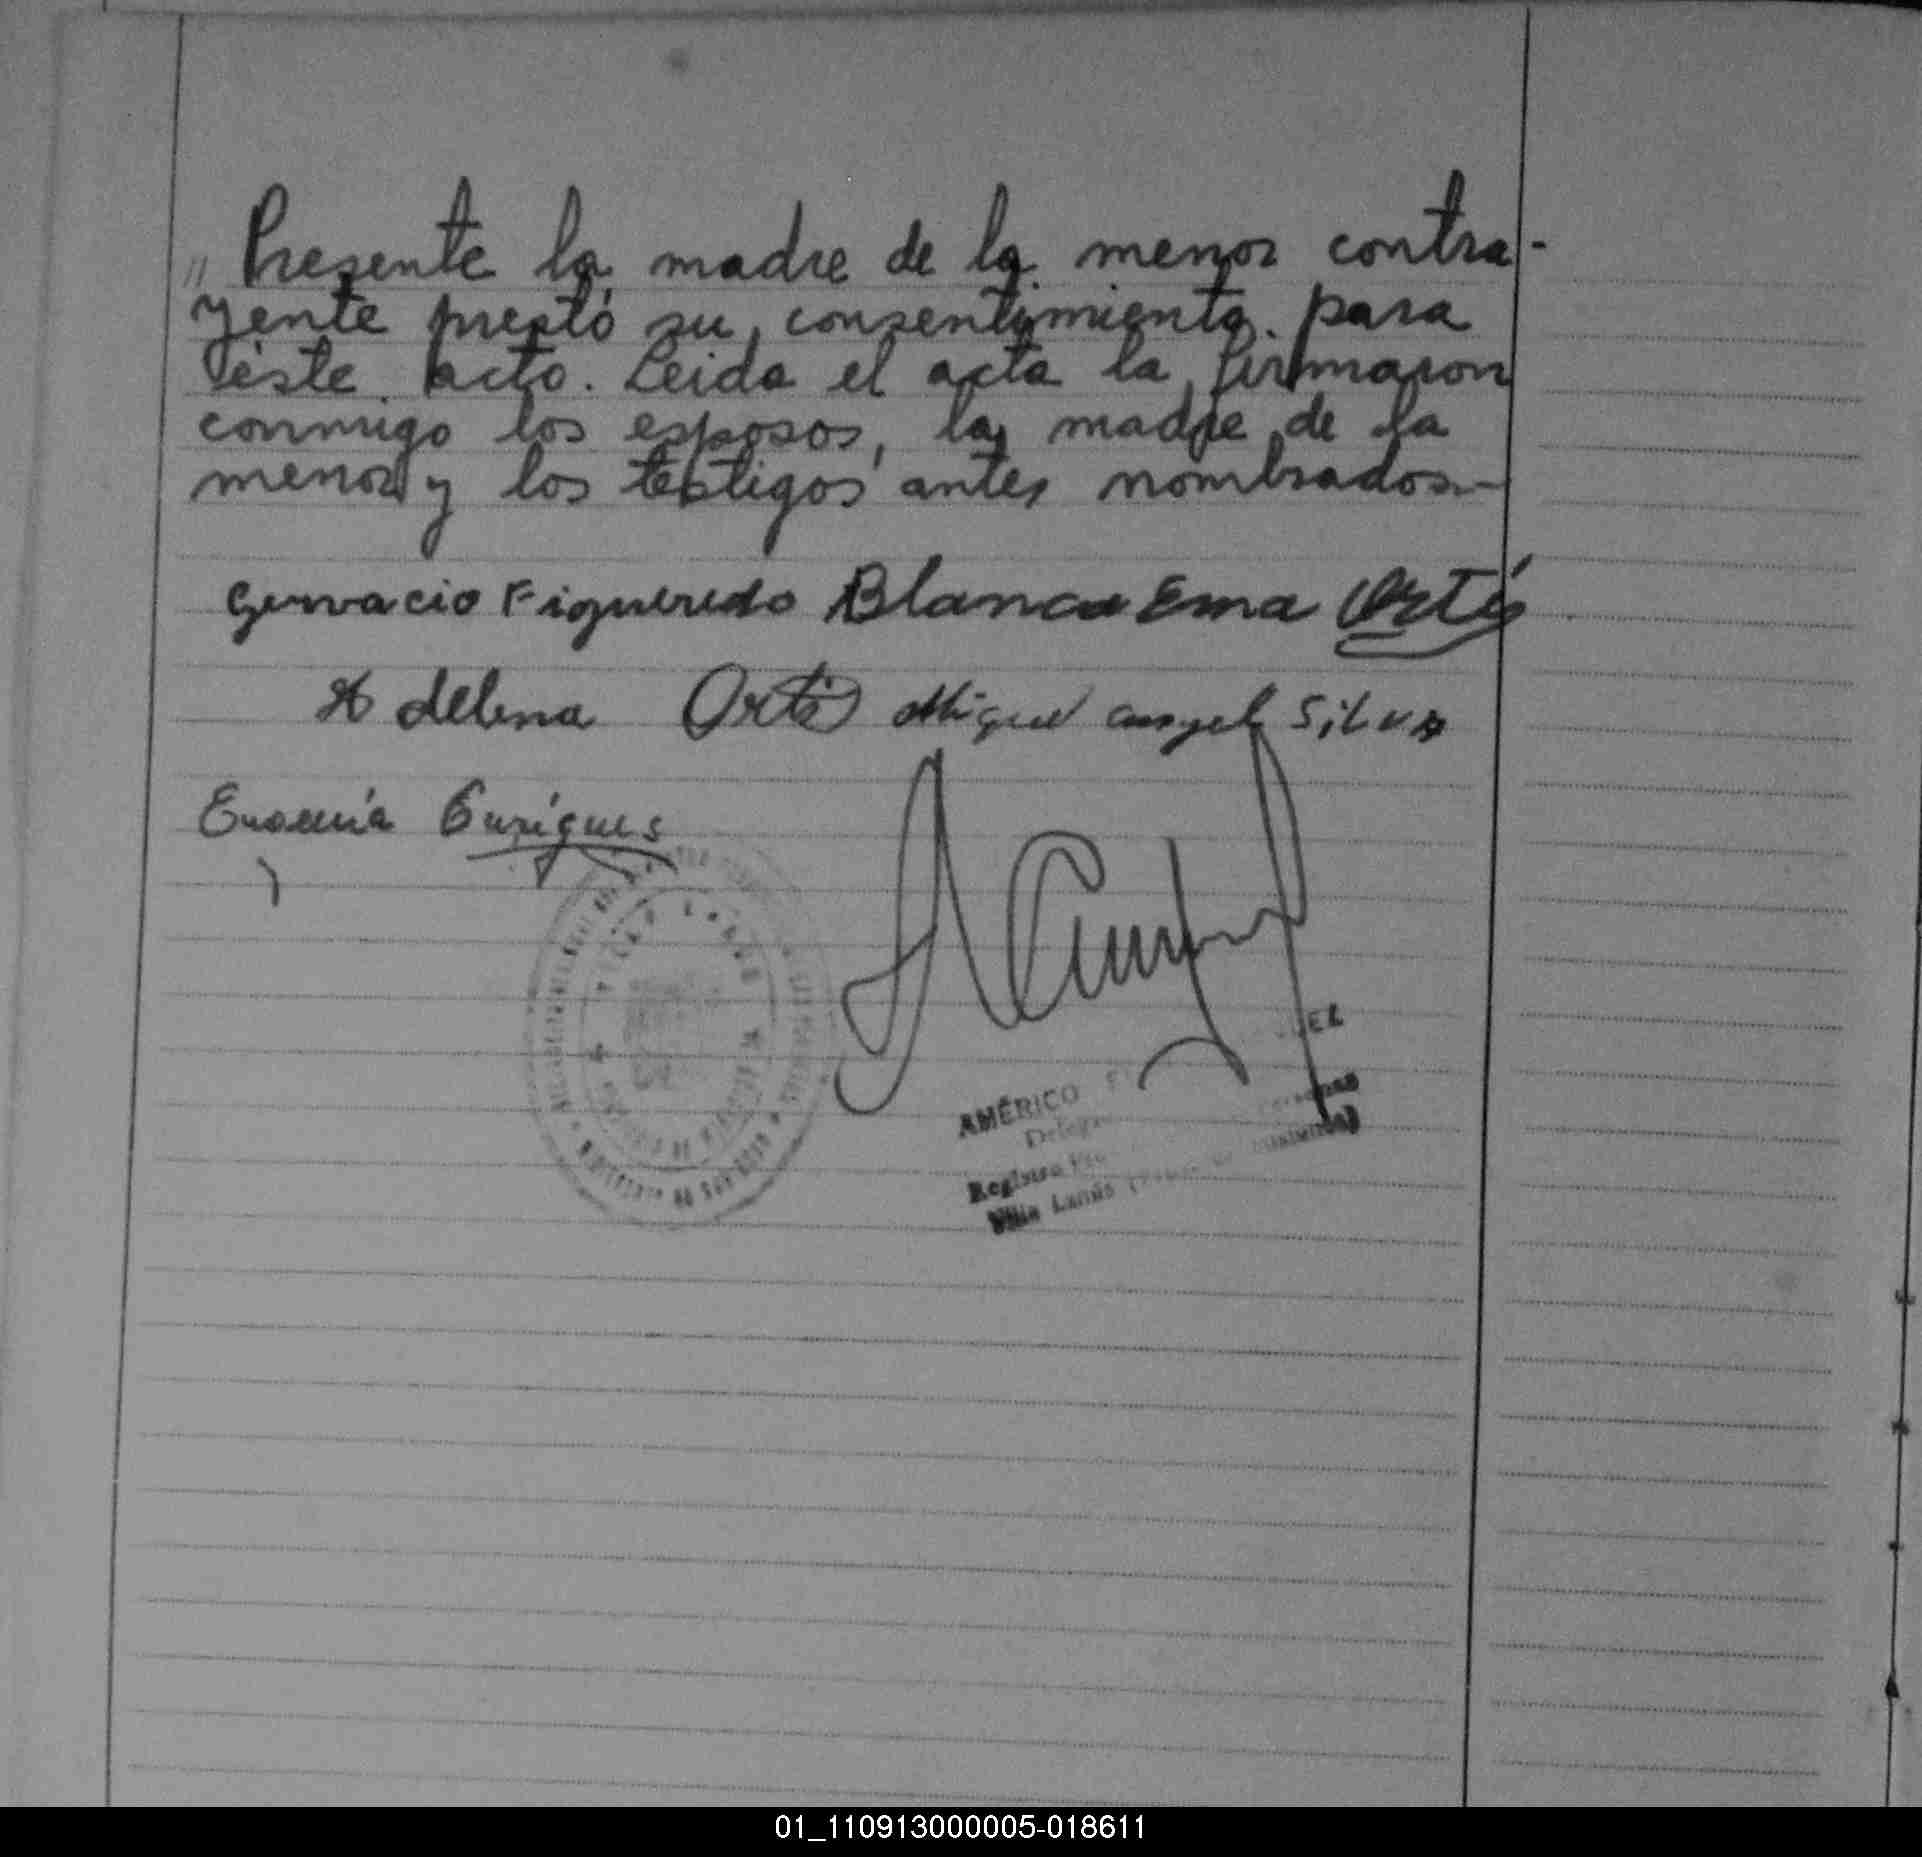 " Presente la madre de la menor contra-
yente prestó su consentimiento para
éste acto. Leida el acta la firmaron
conmigo los esposos, la madre de la
menor y los testigos antes nombrados.-
Gervacio Figueredo Blanca Ema Ortis
Adelina Ortis Miguel angel Silva
Enriques
AMÉRICO
Registro
Villa Lanús
01_110913000005-018611